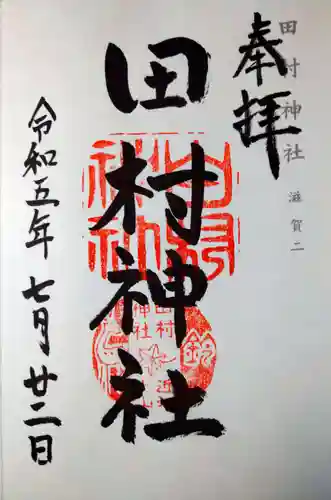 田村神社 滋賀二
奉拝
田村神社
令和五年 七月 廿二日
田村
神社